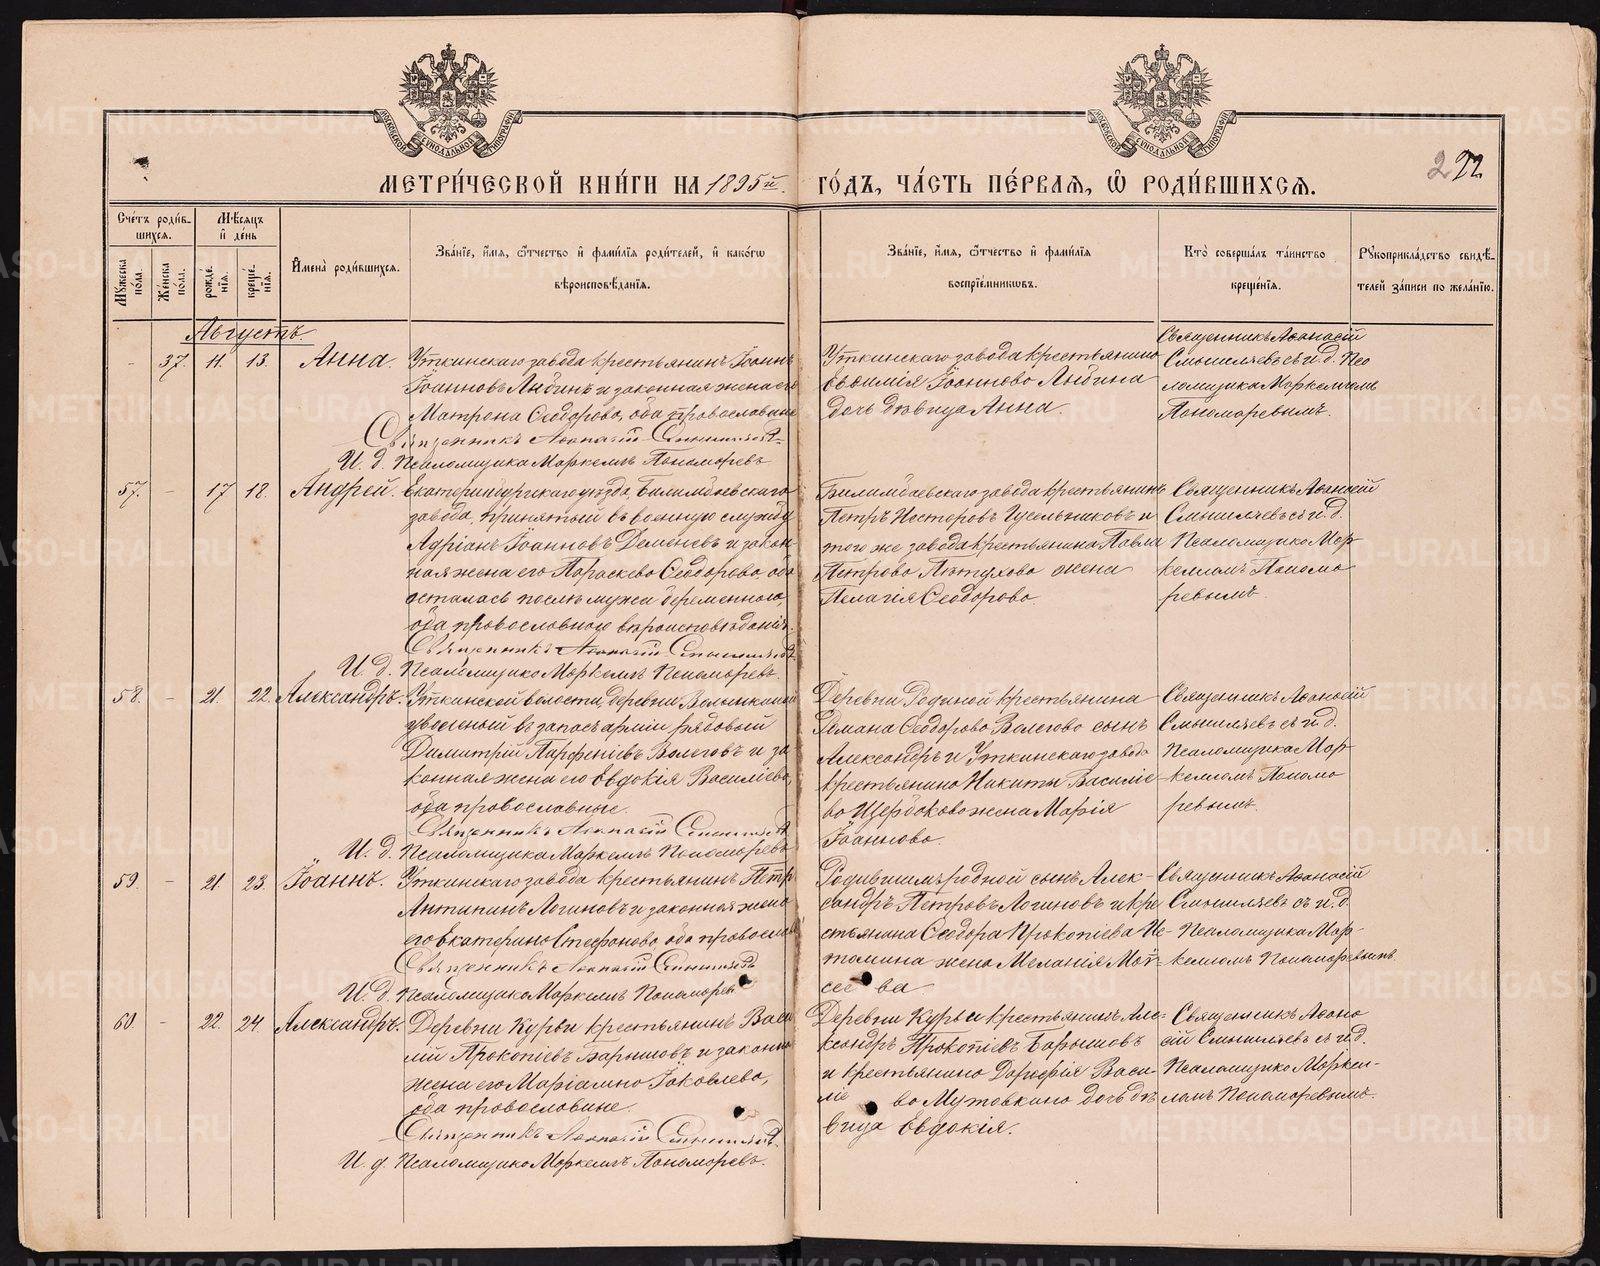 МЕТРИ́ЧЕСКОЙ КНИ́ГИ НА 1895й
ГО́ДЪ, ЧА́СТЬ ПЕ́РВАЯ, Ѡ РОДИ́ВШИХСЯ.
292
Сче́тъ роди́в-
шихся.
Мꙋ́жеска по́ла.
Же́нска по́ла.
Мѣ́сяцъ
и҆ де́нь
рожде́нїя.
креще́нїя.
И҆мена̀ роди́вшихся.
Зва́нїе, и҆́мя, ѻ҆́тчество и҆ фами́лїя роди́телей, и҆ како́гѡ
вѣроисповѣ́данїя.
Зва́нїе, и҆́мя, ѻ҆́тчество и҆ фами́лїя
воспрїе́мникѡвъ.
Кто̀ соверша́лъ та́инство
креще́нїя.
Рꙋкоприкла́дство свидѣ́-
телей за́писи по жела́нїю.
Августъ.
- 37. 11. 13. Анна.
Уткинскаго завода крестьянинъ Іоаннъ
Іоанновъ и законная жена его
Матрона Ѳеодорова, оба православные
Священникъ Аѳанасій Смышляевъ
И. д. Псаломщика Маркеллъ Пономаревъ
Уткинскаго завода крестьянина
Евѳимія Іоаннова
дочь дѣвица Анна.
Священникъ Аѳанасій
Смышляевъ съ и. д. Пса
ломщика Маркелломъ
Пономаревымъ.
57. - 17 18. Андрей.
Екатеринбургскаго уѣзда, Билимбаевскаго
завода, принятый въ военную службу
Адріанъ Іоанновъ Деменевъ и закон-
ная жена его Параскева Ѳеодорова, она
осталась послѣ мужа беременною,
оба православнаго вѣроисповѣданія.
Священникъ Аѳанасій Смышляевъ
И. д. Псаломщика Маркеллъ Пономаревъ.
Билимбаевскаго завода крестьянинъ
Петръ Несторовъ Гусельниковъ и
того же завода крестьянина Павла
Петрова Пѣтухова жена
Пелагія Ѳеодорова.
Священникъ Аѳанасій
Смышляевъ съ и. д.
Псаломщика Мар-
келломъ Понома
ревымъ.
58. - 21. 22. Александръ.
Уткинской волости, деревни
уволенный въ запасъ арміи рядовый
Димитрій Парѳеніевъ Волеговъ и за
конная жена его Евдокія Василіева,
оба православные.
Священникъ Аѳанасій Смышляевъ
И. д. Псаломщика Маркеллъ Пономаревъ
Деревни крестьянина
Германа Ѳеодорова Волегова сынъ
Александръ и Уткинскаго завода
крестьянина Никиты Василіе
ва Щербакова жена Марія
Іоаннова.
Священникъ Аѳанасій
Смышляевъ съ и. д.
Псаломщика Мар-
келломъ Понома
ревымъ.
59. - 21. 23. Іоаннъ.
Уткинскаго завода крестьянинъ Петръ
Антипинъ Логиновъ и законная жена
его Екатерина Стефанова, оба православ
Священникъ Аѳанасій Смышляевъ
И. д. Псаломщика Маркеллъ Пономаревъ
Родившимъ родной сынъ Алек-
сандръ Петровъ Логиновъ и кре
стьянина Ѳеодора Прокопіева Ис-
томина жена Меланія Мои-
сеева.
Священникъ Аѳанасій
Смышляевъ съ и. д.
Псаломщика Мар-
келломъ Пономаревымъ
60 - 22. 24. Александръ.
Деревни Курьи крестьянинъ Васи
лій Прокопіевъ Барышовъ и законна
жена его Маріамна Іаковлева,
оба православные.
Священникъ Аѳанасій Смышляевъ.
И. д. Псаломщика Маркеллъ Пономаревъ.
Деревни Курьи крестьянинъ Але-
ксандръ Прокопіевъ Барышовъ
и крестьянина Дороѳія Васи-
ліева Мутовкина дочь дѣ
вица Евдокія.
Священникъ Аѳана
сій Смышляевъ съ и. д.
Псаломщика Маркел-
ломъ Пономаревымъ.
METRIKI.GASO-URAL.RU